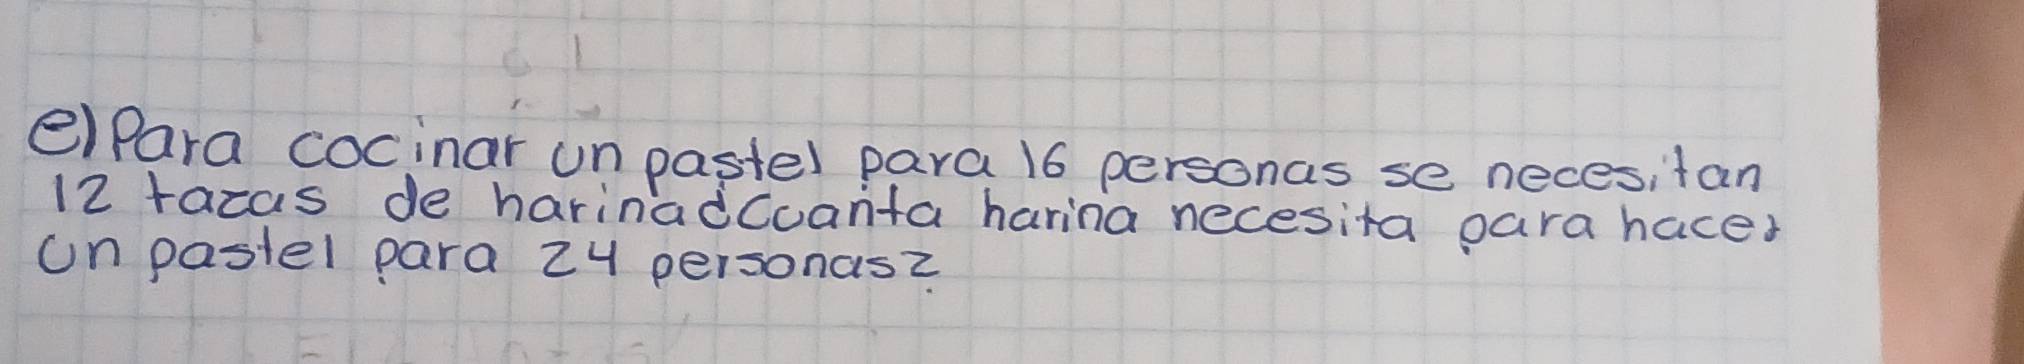 e) Para cocinar un pastel para 16 personas se necesitan
12 tazas de harina ¿Cuanta harina necesita para hacer
un pastel para 24 personas?